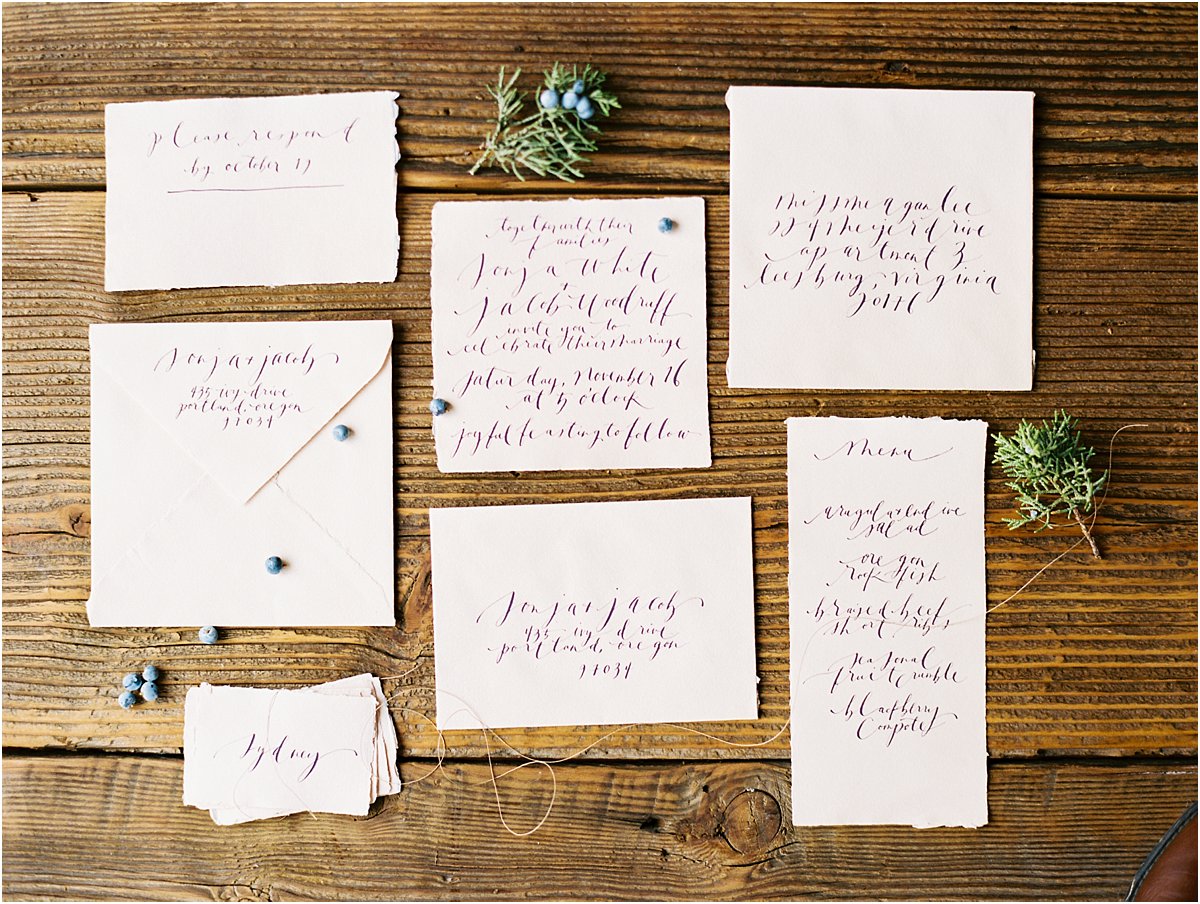 please respond
by october 17
together with their
families
Sonja White
+
Jacob Woodruff
invite you to
celebrate their marriage
Saturday, November 16
at 5 o'clock
joyful feasting to follow
miss meagan lee
drive
apartment 3
leesburg, virginia
Sonja + jacob
935 ivy drive
portland, oregon
97034
Sonja + jacob
935 ivy drive
portland, oregon
97034
Menu
arugula + endive
salad
oregon
rock fish
braised beef
short ribs
seasonal
fruit crumble
blackberry
compote
Sydney